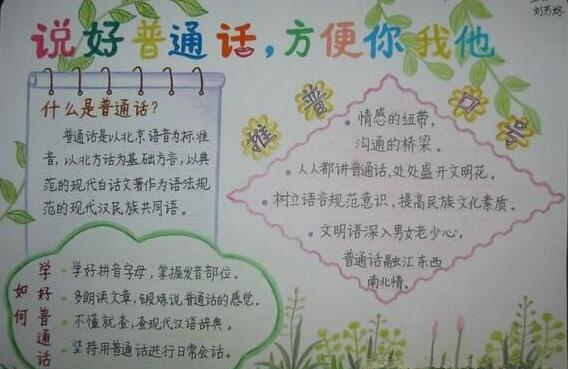 说好普通话，方便你我他
什么是普通话？
普通话是以北京语音为标准
音，以北方话为基础方言，以典
范的现代白话文著作为语法规
范的现代汉民族共同语。
推普口号
情感的纽带，
沟通的桥梁。
人人都讲普通话，处处盛开文明花。
树立语言规范意识，提高民族文化素质。
文明语深入男女老少心，
普通话融江东西
南北情。
如何
学好普通话
学好拼音字母，掌握发音部位。
多朗读文章，锻炼说普通话的感觉。
不懂就查，查现代汉语辞典。
坚持用普通话进行日常会话。